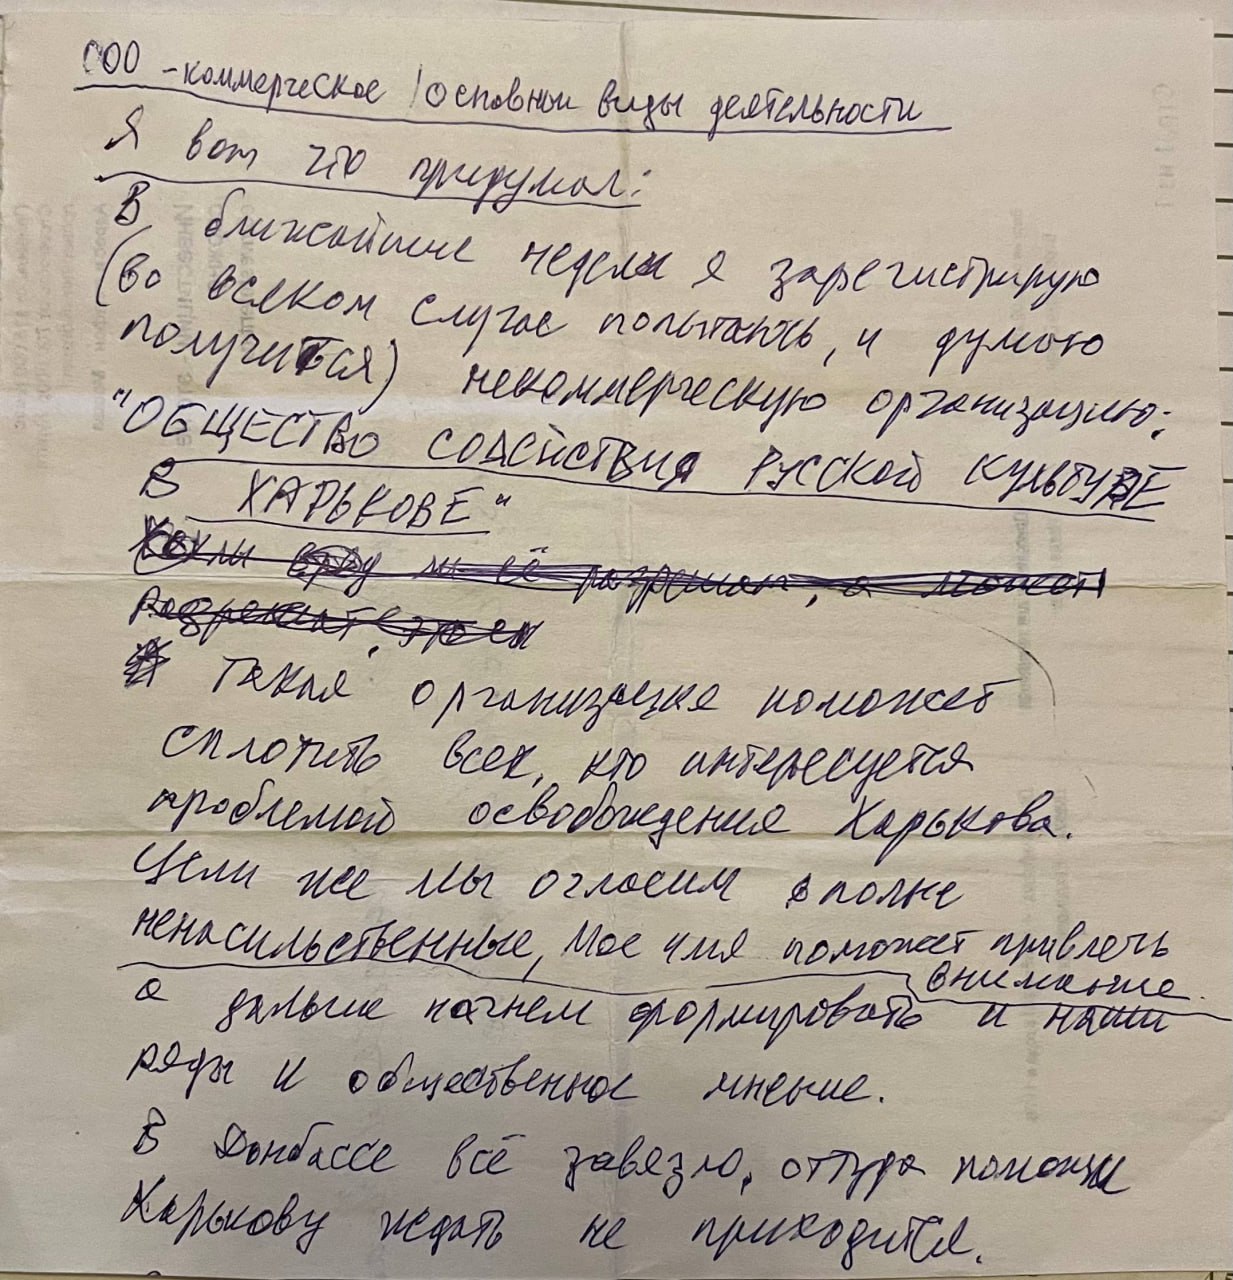 ООО - коммерческое / основные виды деятельности
Я вот что придумал:
В ближайшие недели я зарегистрирую
(во всяком случае попытаюсь, и думаю
получится) некоммерческую организацию:
"ОБЩЕСТВО СОДЕЙСТВИЯ РУССКОЙ КУЛЬТУРЕ
В ХАРЬКОВЕ"
Хохлы вряд ли её разрешат, а может
разрешат,
Такая организация поможет
сплотить всех, кто интересуется
проблемой освобождения Харькова.
Цели же мы огласим вполне
ненасильственные, Мое имя поможет привлечь
внимание.
а дальше начнем формировать и наши
ряды и общественное мнение.
В Донбассе всё завязло, оттуда помощи
Харькову ждать не приходится.